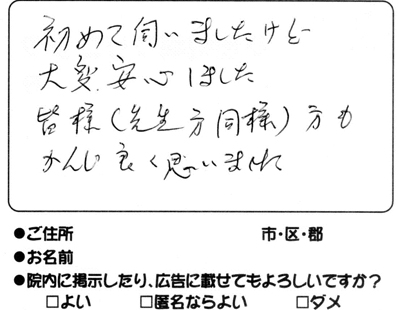 初めて伺いましたけど
大変安心しました
皆様(先生方同様)方も
かんじ良く思いました
●ご住所 市・区・郡
●お名前
●院内に掲示したり、広告に載せてもよろしいですか?
□よい □匿名ならよい □ダメ